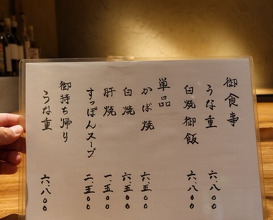 御食事
うな重 六、八〇〇
白焼御飯 六、八〇〇
単品
かば焼 六、五〇〇
白焼 六、五〇〇
肝焼 一、五〇〇
すっぽんスープ 二、五〇〇
御持ち帰り
うな重 六、八〇〇